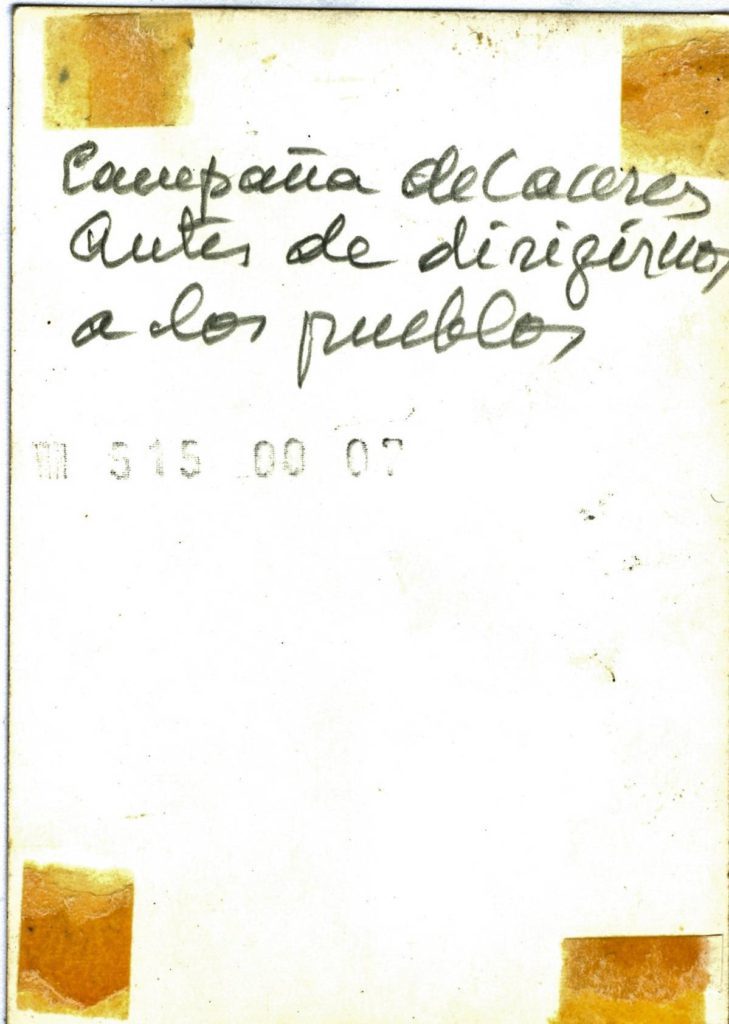 Campaña de Caceres
Antes de dirigirnos
a los pueblos
515 00 07